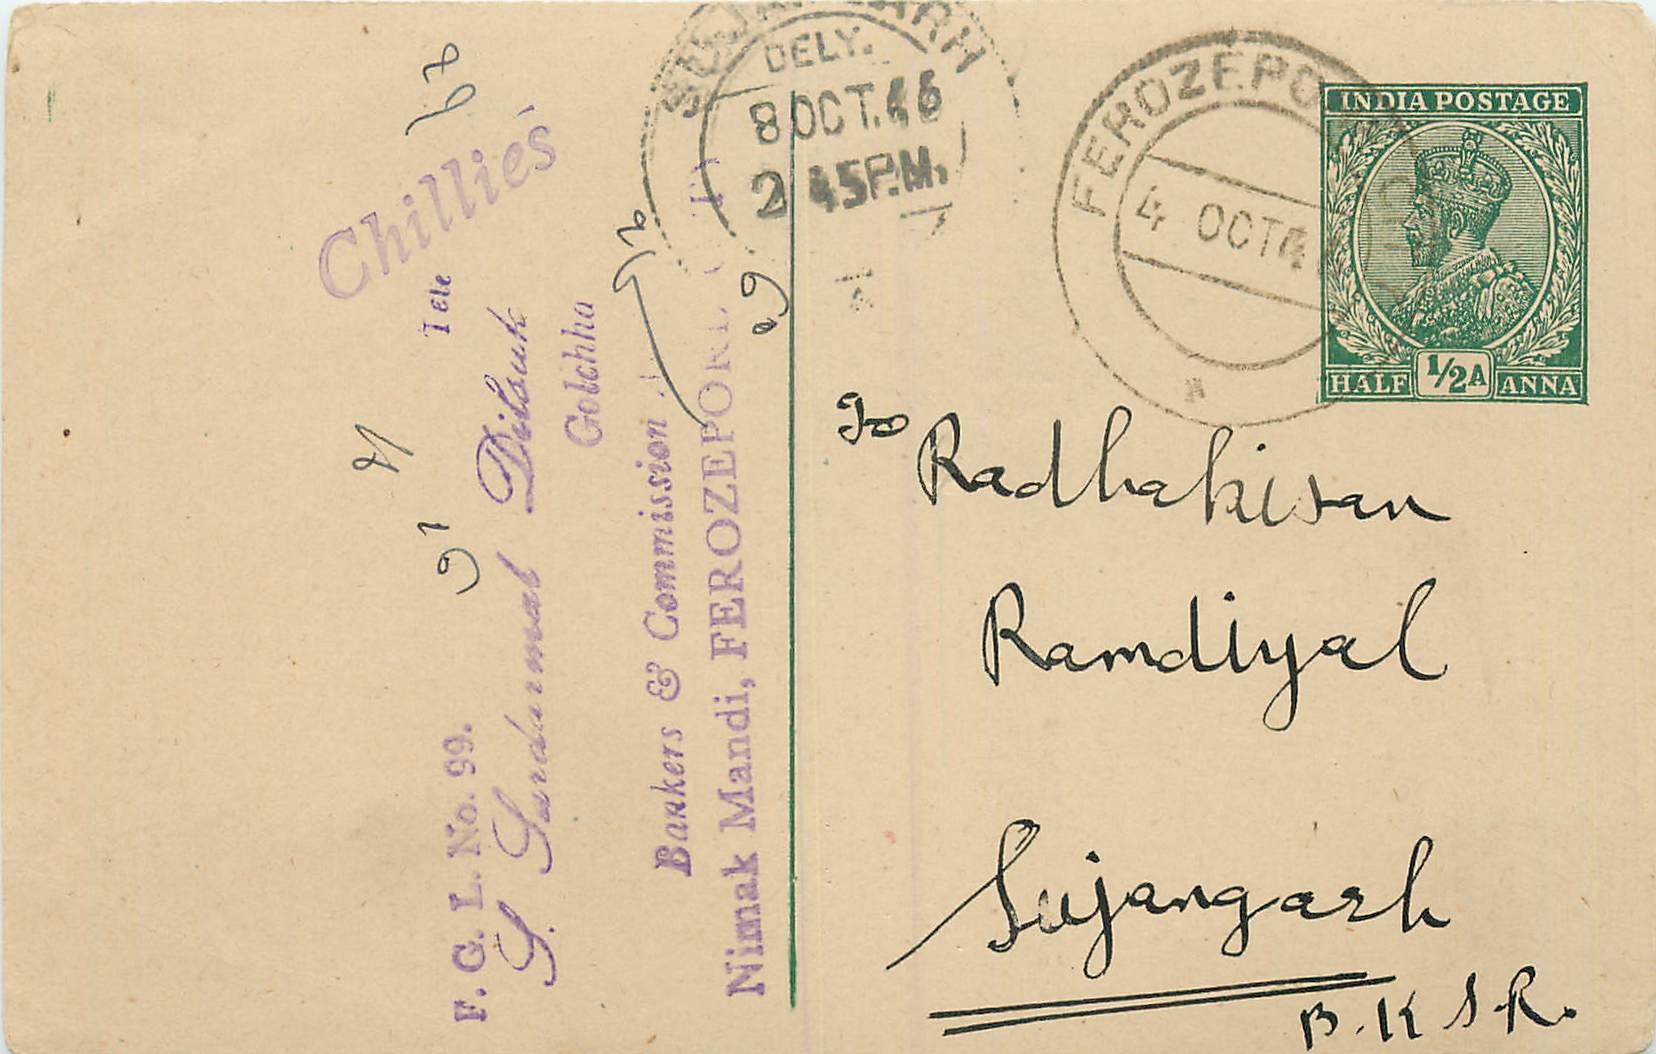 Chillies
F. G. L. No. 99. Tele
S. Sardarmal Dilsuk
Golchha
Bankers & Commission
Nimak Mandi, FEROZEPORE
SUJANGARH
DELY.
8 OCT. 46
2 45 P.M.
FEROZEPO
4 OCT 4
INDIA POSTAGE
HALF 1/2A ANNA
To Radhakisan
Ramdiyal
Sujangarh
B.K.S.R.